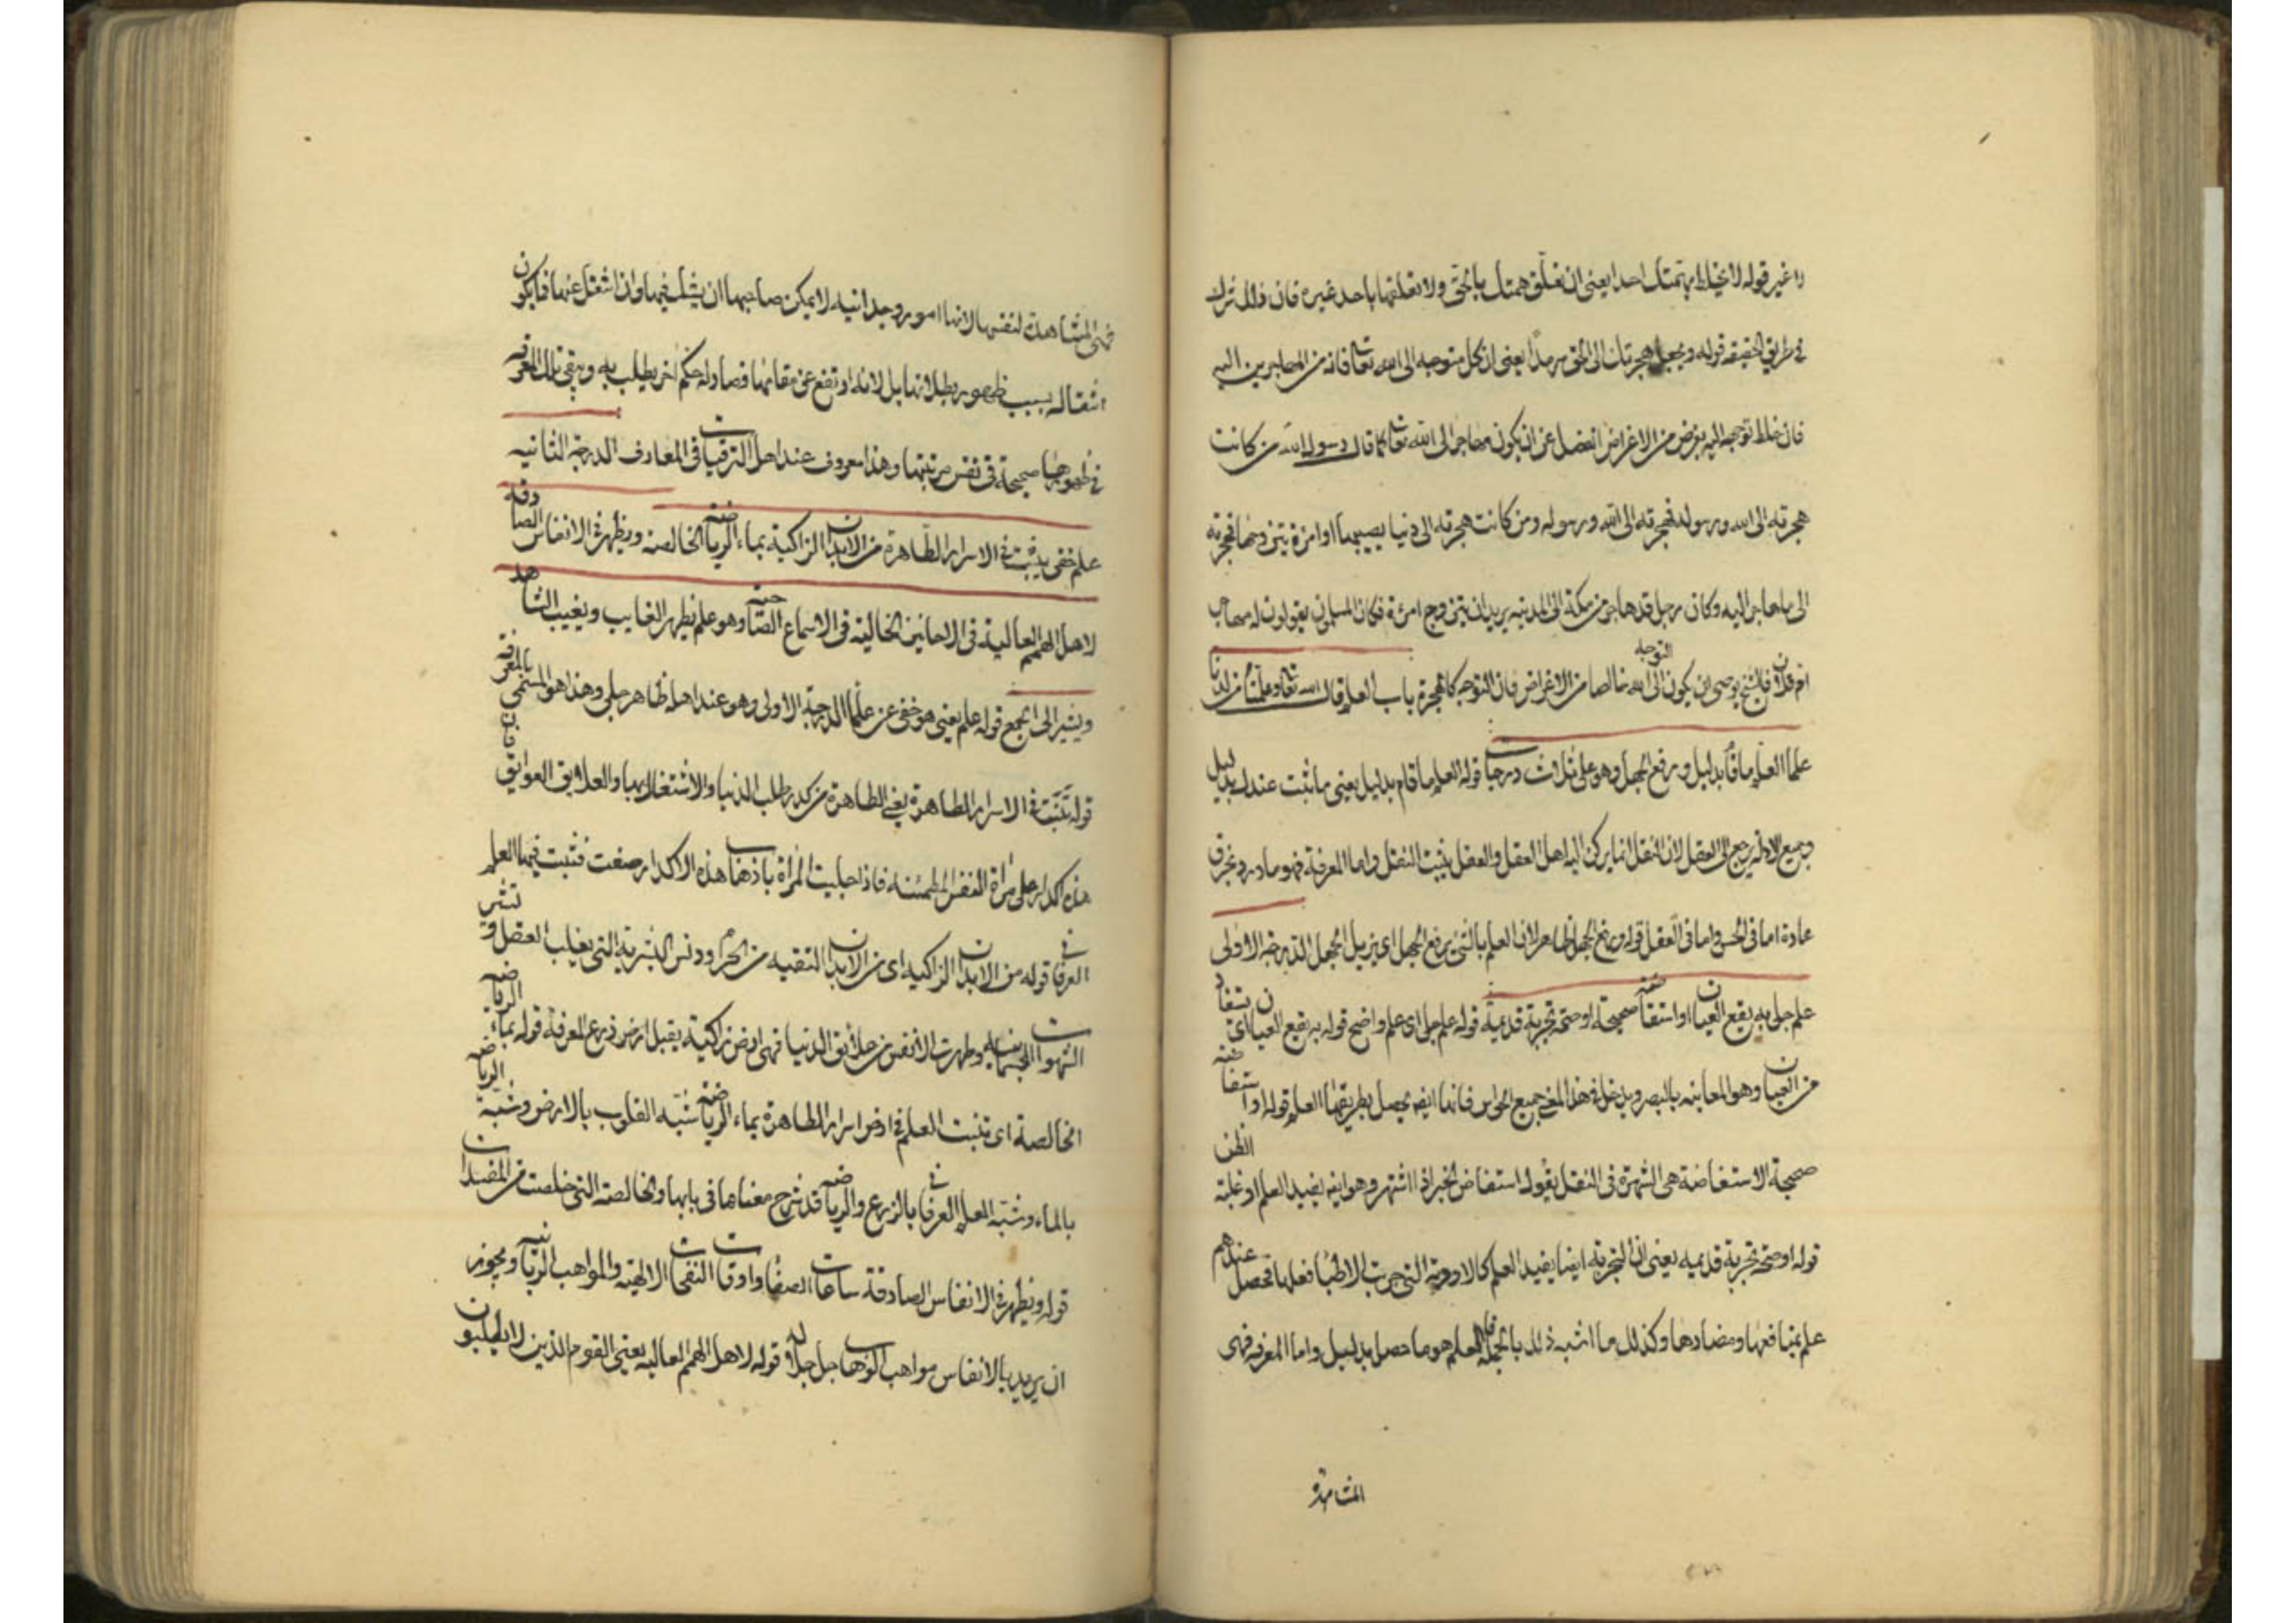 ذا غير قوله لا يخلط بهمتك احدا يعنى ان تعلق همتك بالحق ولا تعلقها باحد غيره فان ذلك شرك
فى طريق الحقيقه قوله ويجعل هجرتك الى الحق سرمدا يعنى ان كل متوجه الى الله تعالى فانه من المهاجرين اليه
فان خلط توجهه اليه بغرض من الاغراض انفصل عن ان يكون مهاجرا الى الله تعالى كما قال رسول الله من كانت
هجرته الى الله ورسوله فهجرته الى الله ورسوله ومن كانت هجرته الى دنيا يصيبها او امرءة يتزوجها فهجرته
الى ما هاجر اليه وكان رجل قد هاجر من مكة الى المدينه يريد ان يتزوج امرءة فكان المسلمون يقولون له مهاجر
ام فلان فالشيخ يوصى ان يكون التوجه الى الله خالصا من الاغراض فان التوجه كالهجرة باب العلم قال الله تعالى وعلمناه من لدنا
علما العلم ما قام بدليل ورفع الجهل وهو على ثلاث درجات قوله العلم ما قام بدليل يعنى ما ثبت عندك بدليل
وجميع الادله يرجع الى العقل لان النقل انما يركن اليه اهل العقل والعقل يثبت النقل واما المعرفة فهو ما درد بخرق
عادة اما فى الحس واما فى العقل قوله ورفع الجهل ظاهر لان العلم بالشئ يرفع الجهل اى يزيل الجهل الدرجة الاولى
علم جلى به يقع العيان او استفاضه صحيحة او صحة تجربة قديمة قوله علم جلى اى علم واضح قوله به يقع العيان اى يستفاد
من العيان وهو المعاينه بالبصر ويدخل فى هذا المعنى جميع الحواس فانها ايضا يحصل بطريقها العلم قوله او استفاضه
صحيحة الاستفاضة هى الشهرة فى النقل يقول استفاض الخبر اذا اشتهر وهو ايضا يفيد العلم او غلبة الظن
قوله او صحة تجربة قديمه يعنى ان التجربة ايضا يفيد العلم كالادوية التى جربت الاطبا فعلها فحصل عندهم
علم بمنافعها ومضارها وكذلك ما اشبه ذلك بالجملة فالعلم هو ما حصل بدليل واما المعرفه فهى
المشاهدة
فهى المشاهدة لنفسها لانها امور وجدانيه لا يمكن صاحبها ان يشك فيها وان انتقل عنها فلا يكون
انتقاله بسبب ظهور بطلانها بل لانه ارتفع عن مقامها فصار له حكم اخر يطلب به ويبقى تلك المعرفه
فى طورها صحيحة فى نفس مرتبتها وهذا معروف عند اهل الترقيات فى المعارف الدرجة الثانيه
علم خفى ينبت فى الاسرار الطاهرة من الابدان الزاكية بماء الرياضه الخالصه ويظهر فى الانفاس الصادقه
لاهل الهمم العالية فى الاحايين الخالية فى الاسماع الصاحيه وهو علم يظهر الغايب ويغيب الشاهد
ويشير الى الجمع قوله علم يعنى هو خفى عن علما الدرجة الاولى وهو عند اهله ظاهر جلى وهذا هو المسمى بالمعرفه
قوله تنبت فى الاسرار الطاهرة يعنى الطاهرة من كدر طلب الدنيا والاشتغال بها والعلايق العوايق فان
هذه اكدار على مراة النفس المطمئنه فاذا جليت المراة باذهاب هذه الاكدار صفت فتبت فيها العلم
العرفانى قوله من الابدان الزاكيه اى من الابدان النقيه من الحرام ودنس البشرية التى يغلب العقل وتشر
الشهوات الجسمانيه وطهرت الانفس من علائق الدنيا فهى ارض زاكية يقبل ارض زرع المعرفة قوله بماء الرياضه
الخالصة اى تنبت العلم فى ارض اسرار الطاهرة بماء الرياضه شبه القلوب بالارض وشبه الرياضه
بالماء وشبه العلم العرفانى بالزرع والرياضه قد شرح معناها فى بابها والخالصه التى خلصت من المفسدات
قوله ويظهر فى الانفاس الصادقة ساعات الصفا واوقات النفحات الالهية والمواهب الربانيه ويجوز
ان يريد بالانفاس مواهب الوهاب جل جلاله قوله لاهل الهمم العاليه يعنى القوم الذين لا يطلبون